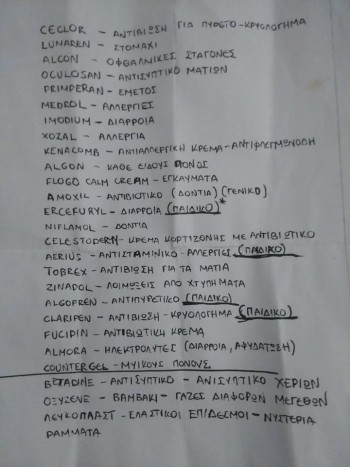 CECLOR - ΑΝΤΙΒΙΩΣΗ ΓΙΑ ΠΥΡΕΤΟ-ΚΡΥΟΛΟΓΗΜΑ
LUNAREN - ΣΤΟΜΑΧΙ
ALCON - ΟΦΘΑΛΜΙΚΕΣ ΣΤΑΓΟΝΕΣ
OCULOSAN - ΑΝΤΙΣΥΠΤΙΚΟ ΜΑΤΙΩΝ
PRIMPERAN - ΕΜΕΤΟΣ
MEDROL - ΑΛΛΕΡΓΙΕΣ
IMODIUM - ΔΙΑΡΡΟΙΑ
XOZAL - ΑΛΛΕΡΓΙΑ
KENACOMB - ΑΝΤΙΑΛΛΕΡΓΙΚΗ ΚΡΕΜΑ - ΑΝΤΙΦΛΕΓΜΟΝΩΔΗ
ALGON - ΚΑΘΕ ΕΙΔΟΥΣ ΠΟΝΟΣ
FLOGO CALM CREAM - ΕΓΚΑΥΜΑΤΑ
AMOXIL - ΑΝΤΙΒΙΟΤΙΚΟ (ΔΟΝΤΙΑ) (ΓΕΝΙΚΟ)
ERCEFURYL - ΔΙΑΡΡΟΙΑ (ΠΑΙΔΙΚΟ)*
NIFLAMOL - ΔΟΝΤΙΑ
CELESTODERM - ΚΡΕΜΑ ΚΟΡΤΙΖΟΝΗΣ ΜΕ ΑΝΤΙΒΙΩΤΙΚΟ
AERIUS - ΑΝΤΙΣΤΑΜΙΝΙΚΟ - ΑΛΛΕΡΓΙΕΣ (ΠΑΙΔΙΚΟ)
TOBREX - ΑΝΤΙΒΙΩΣΗ ΓΙΑ ΤΑ ΜΑΤΙΑ
ZINADOL - ΛΟΙΜΩΞΕΙΣ ΑΠΟ ΧΤΥΠΗΜΑΤΑ
ALGOFREN - ΑΝΤΙΠΥΡΕΤΙΚΟ (ΠΑΙΔΙΚΟ)
CLARIPEN - ΑΝΤΙΒΙΩΣΗ - ΚΡΥΟΛΟΓΗΜΑ (ΠΑΙΔΙΚΟ)
FUCIDIN - ΑΝΤΙΒΙΩΤΙΚΗ ΚΡΕΜΑ
ALMORA - ΗΛΕΚΤΡΟΛΥΤΕΣ (ΔΙΑΡΡΟΙΑ, ΑΦΥΔΑΤΩΣΗ)
COUNTERGEL - ΜΥΙΚΟΥΣ ΠΟΝΟΥΣ
BETADINE - ΑΝΤΙΣΥΠΤΙΚΟ - ΑΝΙΣΥΠΤΙΚΟ ΧΕΡΙΩΝ
ΟΞΥΖΕΝΕ - ΒΑΜΒΑΚΙ - ΓΑΖΕΣ ΔΙΑΦΟΡΩΝ ΜΕΓΕΘΩΝ
ΛΕΥΚΟΠΛΑΣΤ - ΕΛΑΣΤΙΚΟΙ ΕΠΙΔΕΣΜΟΙ - ΝΥΣΤΕΡΙΑ
ΡΑΜΜΑΤΑ